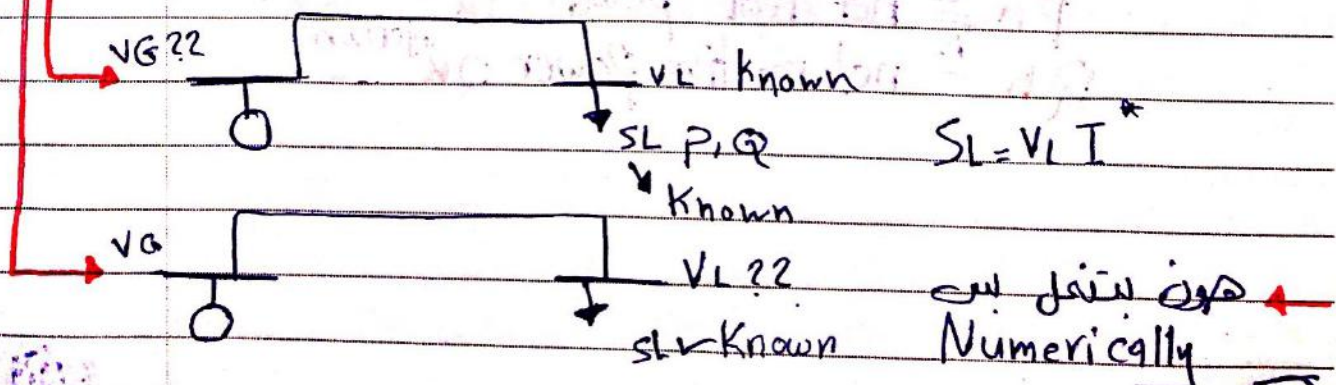 VG ??
VL Known
SL P, Q
SL = VL I*
Known
VG
VL ??
SL Known
هون بتنحل بس
Numerically